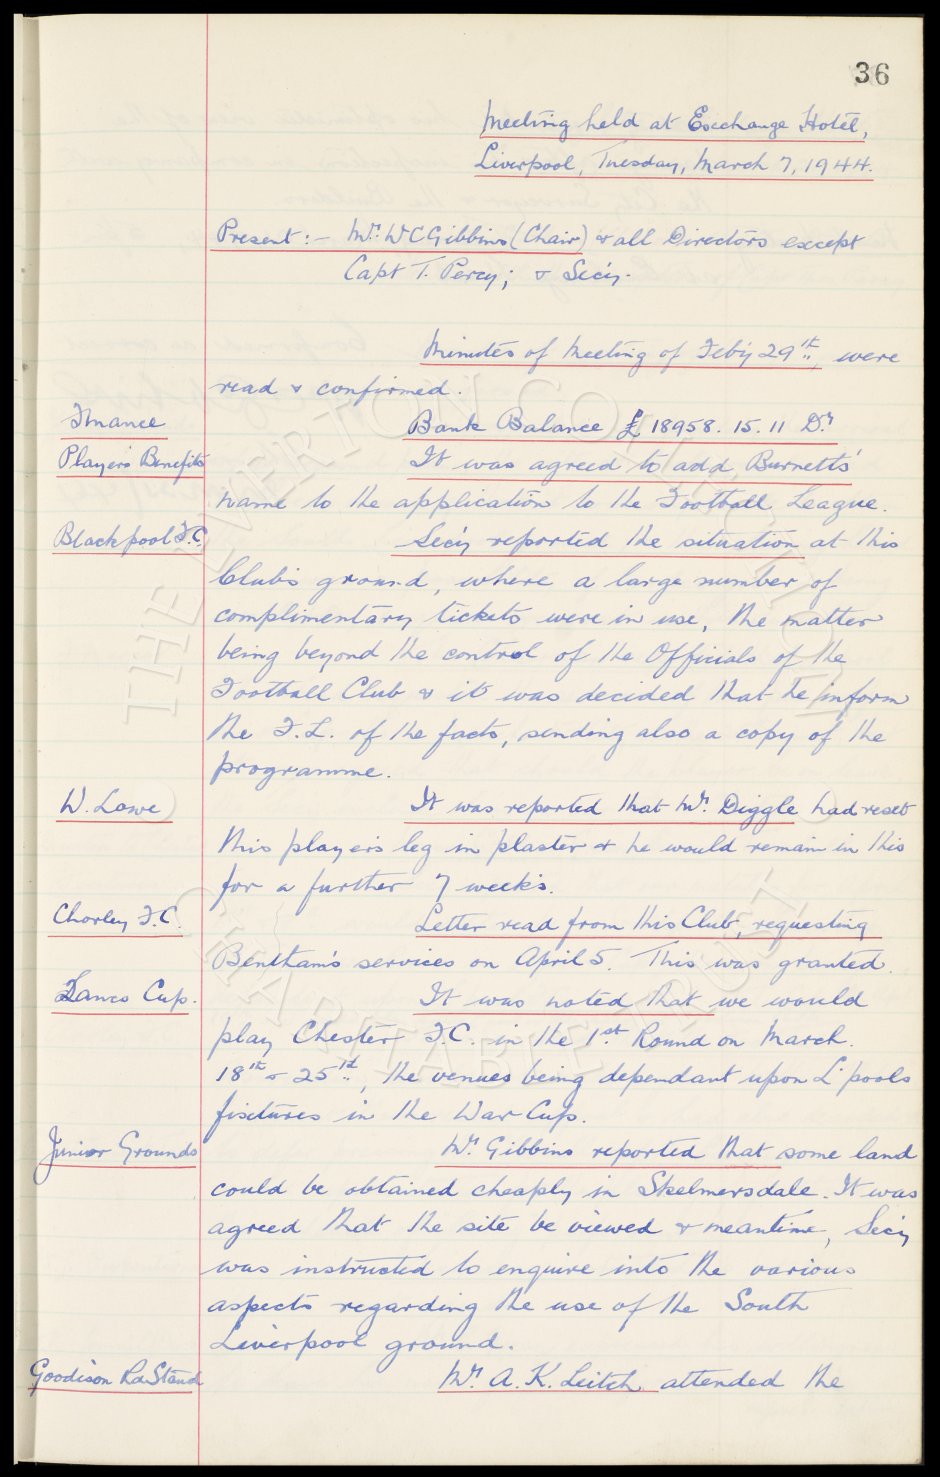 36
Meeting held at Exchange Hotel,
Liverpool, Tuesday, March 7, 1944.
Present:- Mr. W C Gibbins (Chair) & all Directors except
Capt T. Percy; & Secy.
Minutes of Meeting of Feb'y 29th, were
read & confirmed.
Finance
Bank Balance £18958. 15. 11 Dr
Player's Benefits
It was agreed to add Burnett's
name to the application to the Football League.
Blackpool F.C.
Sec'y reported the situation at this
Club's ground, where a large number of
complimentary tickets were in use, the matter
being beyond the control of the Officials of the
Football Club & it was decided that he inform
the F.L. of the facts, sending also a copy of the
programme.
W. Lowe
It was reported that Mr. Diggle had reset
this player's leg in plaster & he would remain in this
for a further 7 weeks.
Chorley F.C.
Letter read from this Club, requesting
Bentham's services on April 5. This was granted.
Lancs Cup.
It was noted that we would
play Chester F.C. in the 1st Round on March.
18th & 25th, the venues being dependant upon L'pools
fixtures in the War Cup.
Junior Grounds
Mr. Gibbins reported that some land
could be obtained cheaply in Skelmersdale. It was
agreed that the site be viewed & meantime, Secy
was instructed to enquire into the various
aspects regarding the use of the South
Liverpool ground.
Goodison Rd. Stand
Mr. A. K. Leitch attended the
THE EVERTON COLLECTION
CHARITABLE TRUST